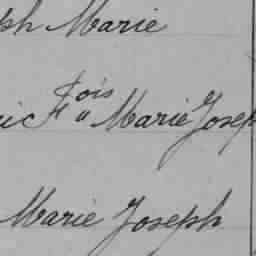 ph Marie
ic Fois " Marie Josep
Marie Joseph